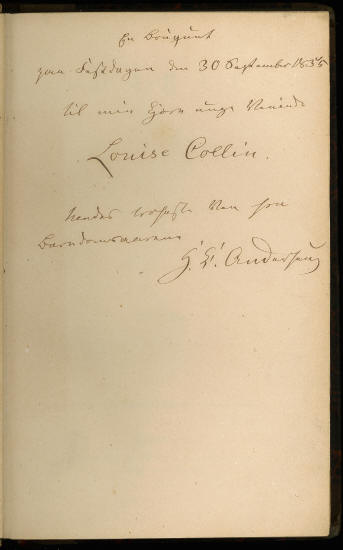 En Bouquet
paa Festdagen den 30 September 1835
til min kjære unge Veninde
Louise Collin.
hendes Ven fra
Barndomsaarene
H. C. Andersen